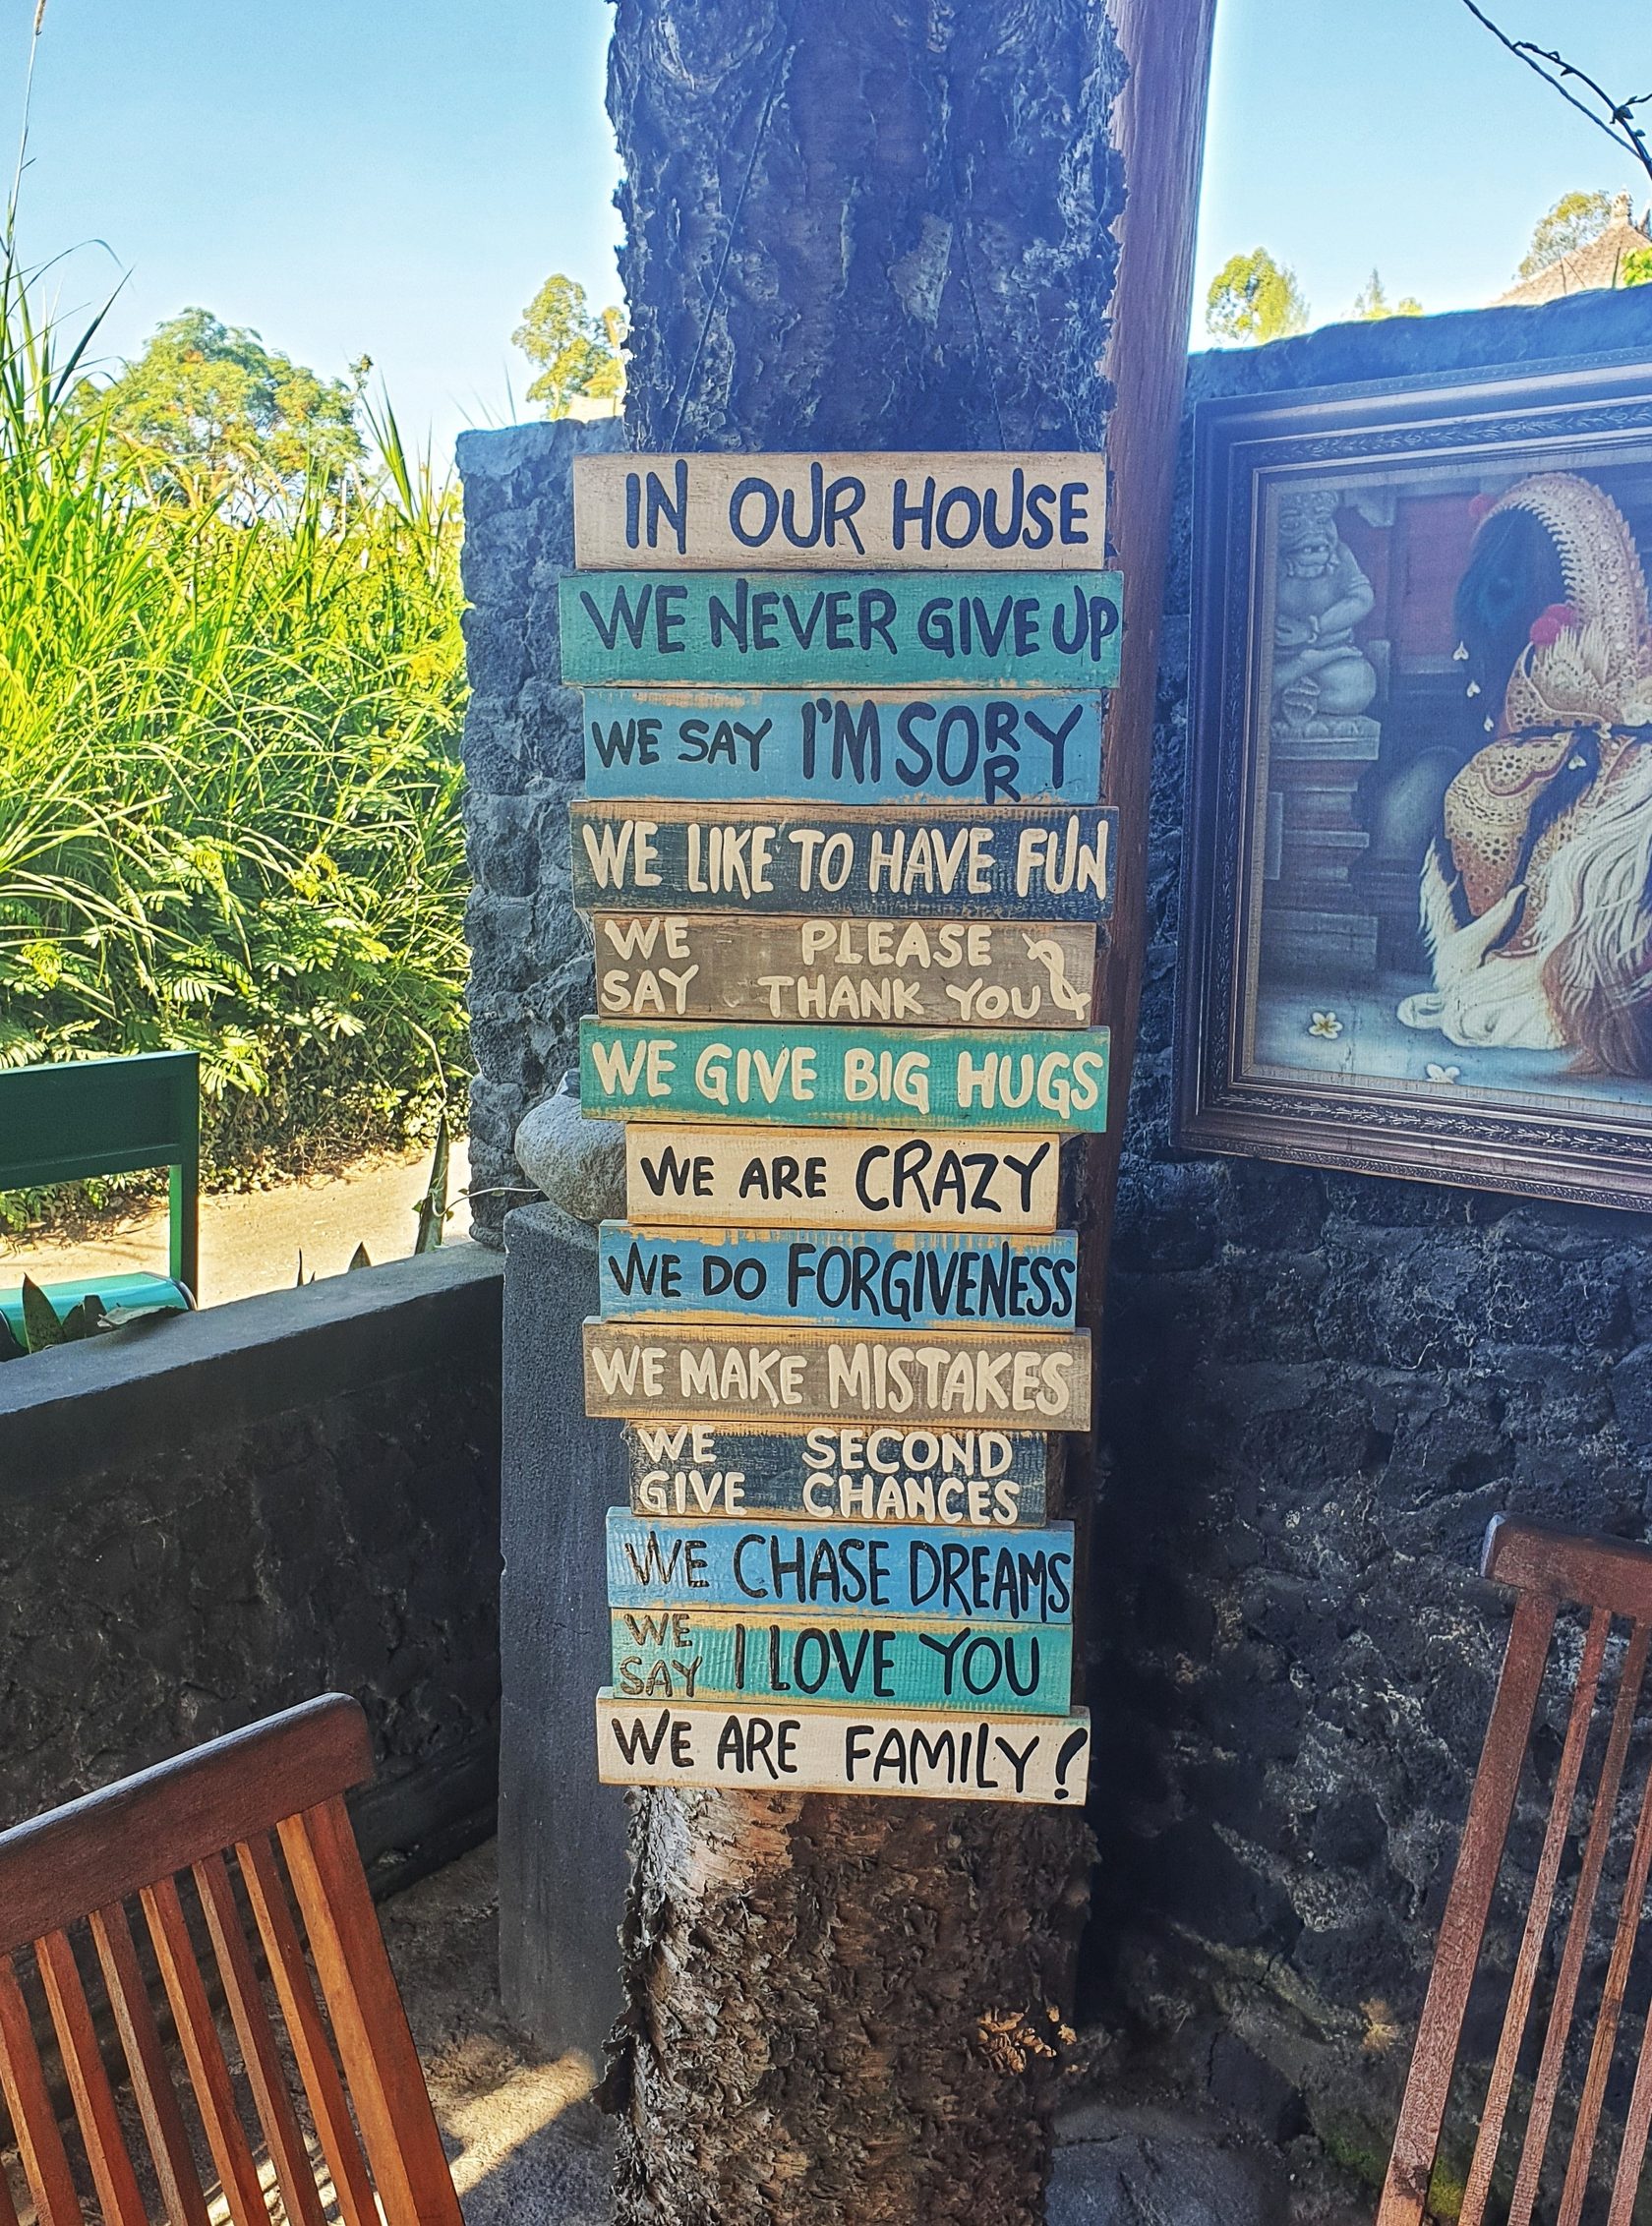 IN OUR HOUSE
WE NEVER GIVE UP
WE SAY I'M SORRY
WE LIKE TO HAVE FUN
WE SAY PLEASE & THANK YOU
WE GIVE BIG HUGS
WE ARE CRAZY
WE DO FORGIVENESS
WE MAKE MISTAKES
WE GIVE SECOND CHANCES
WE CHASE DREAMS
WE SAY I LOVE YOU
WE ARE FAMILY!